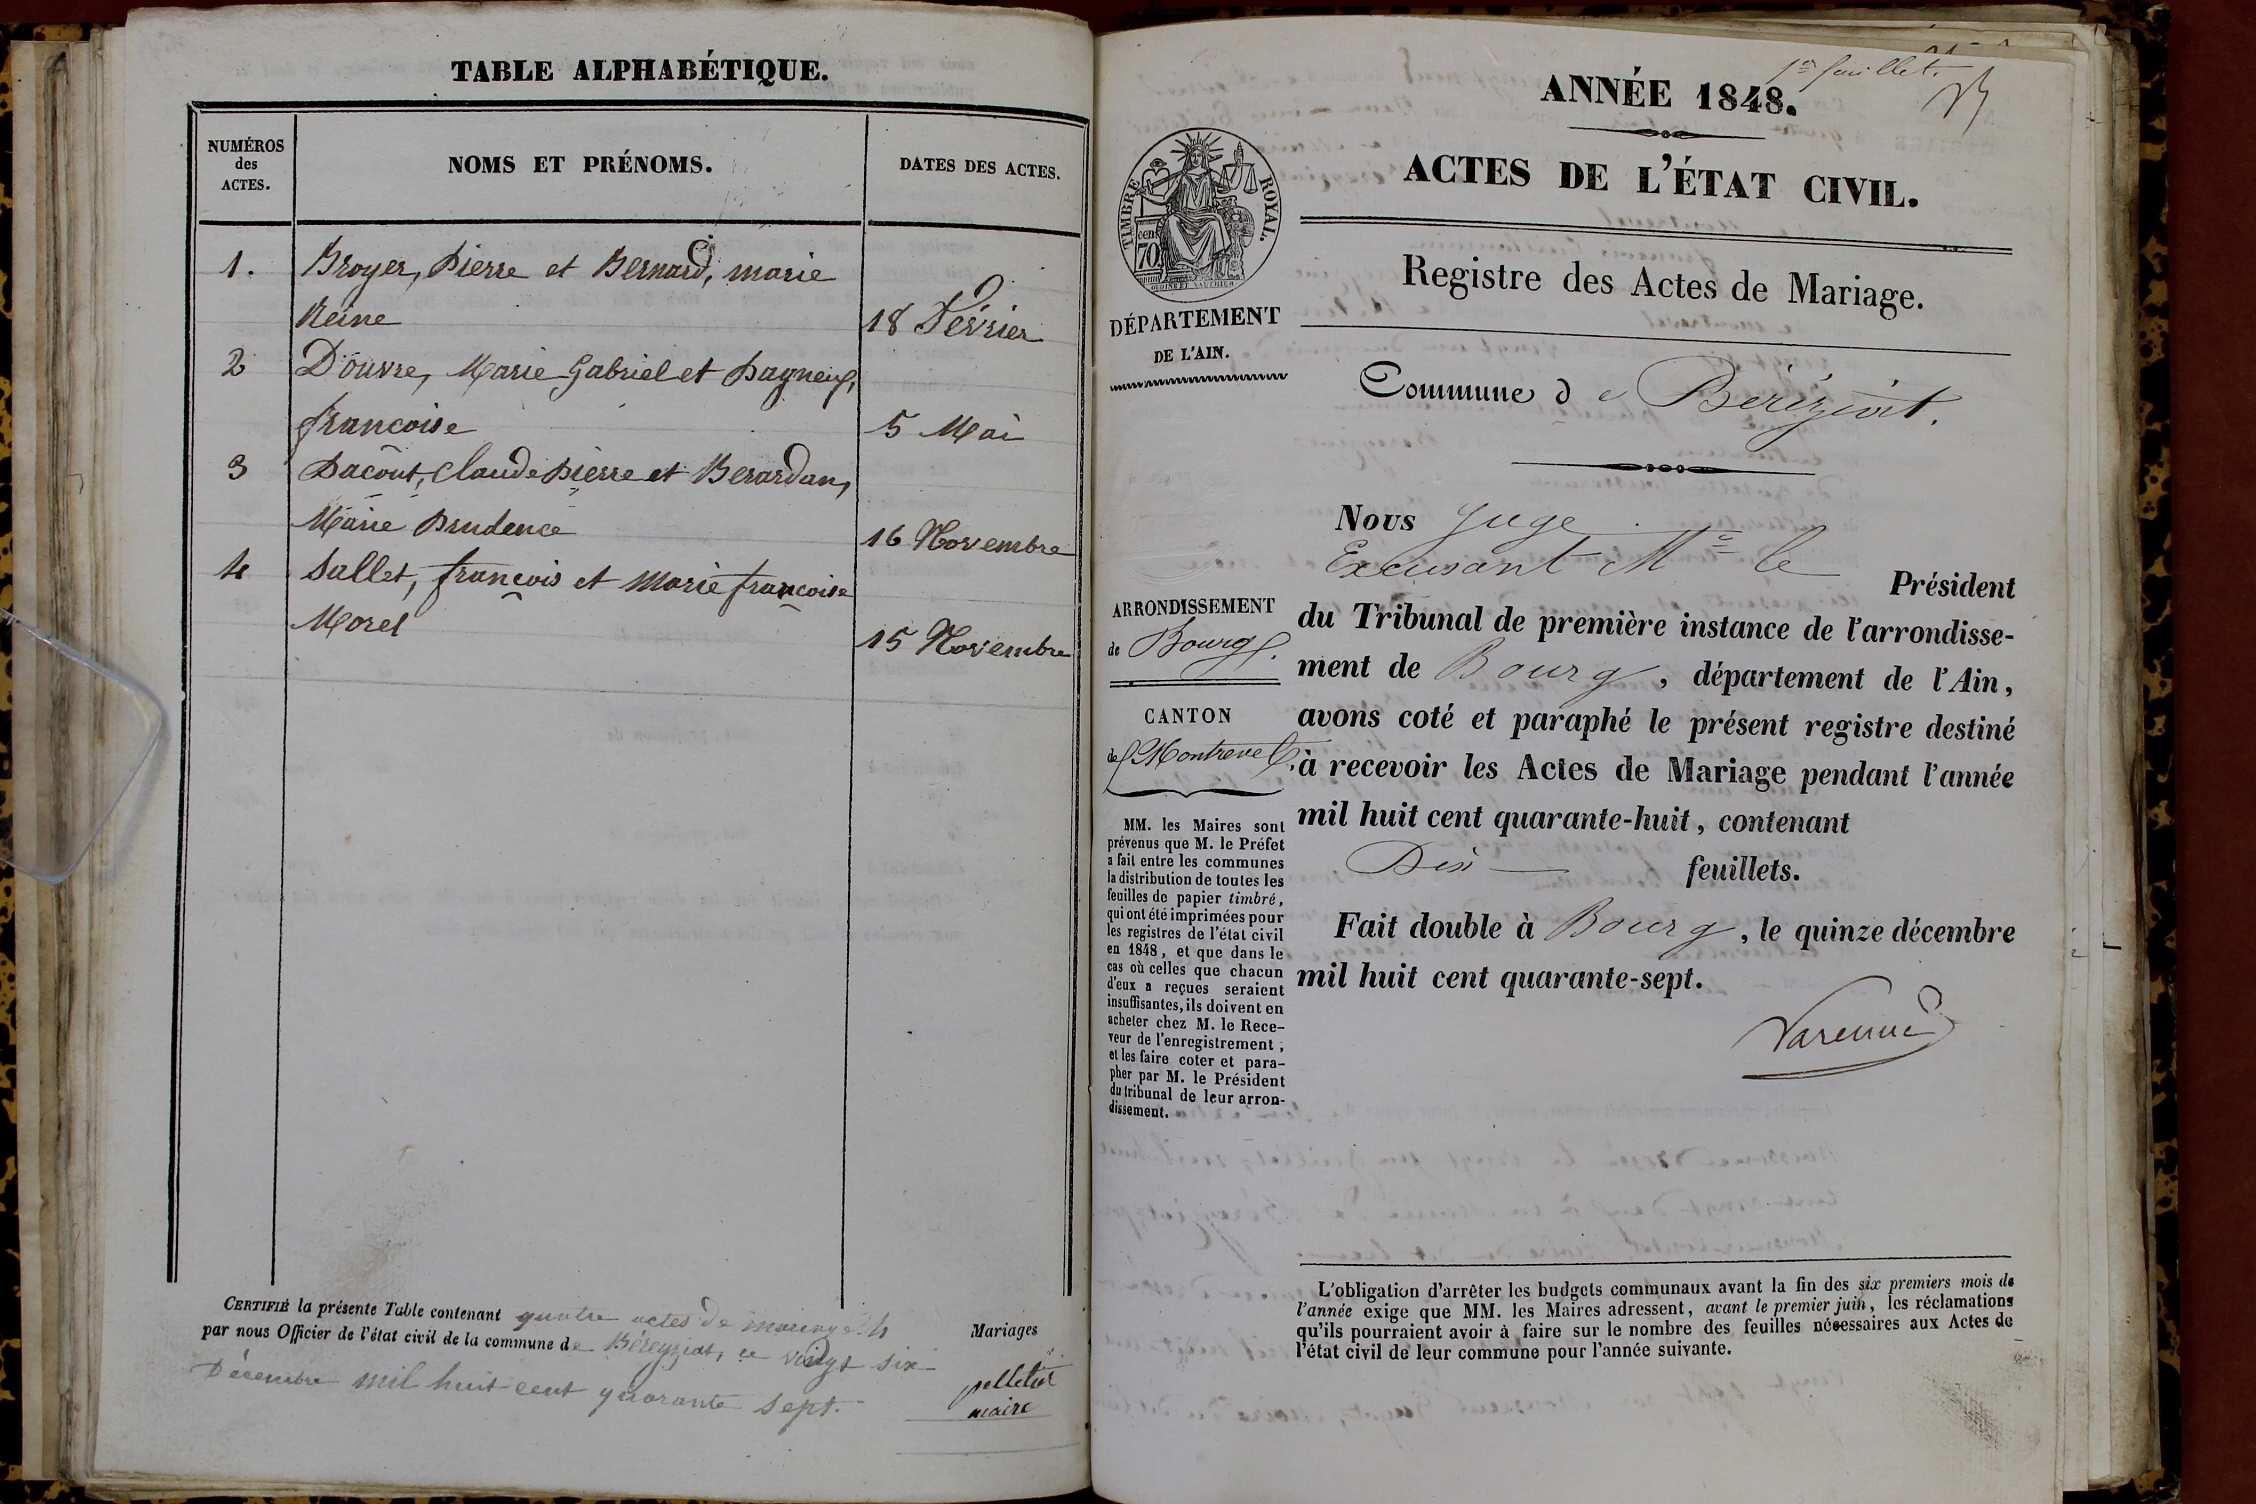 TABLE ALPHABÉTIQUE.
NUMÉROS
des
ACTES.
NOMS ET PRÉNOMS.
DATES DES ACTES.
1. Broyer, Pierre et Bernard, marie
Reine 18 Février
2 Douvre, Marie Gabriel et Pagneux,
françoise 5 Mai
3 Pacout, Claude Pierre et Berardan,
Marie Prudence 16 Novembre
4 Sallet, françois et Marie françoise
Morel 15 Novembre
CERTIFIÉ la présente Table contenant quatre actes de mariages Mariages
par nous Officier de l'état civil de la commune de Béreyziat, ce vingt six
Décembre mil huit cent quarante sept.
pelletier
maire
1er feuillet.
ANNÉE 1848.
TIMBRE ROYAL.
70 cent
ACTES DE L'ÉTAT CIVIL.
Registre des Actes de Mariage.
DÉPARTEMENT
DE L'AIN.
Commune de Béréziat.
ARRONDISSEMENT
de Bourg.
CANTON
de Montrevel.
MM. les Maires sont
prévenus que M. le Préfet
a fait entre les communes
la distribution de toutes les
feuilles de papier timbré,
qui ont été imprimées pour
les registres de l'état civil
en 1848, et que dans le
cas où celles que chacun
d'eux a reçues seraient
insuffisantes, ils doivent en
acheter chez M. le Rece-
veur de l'enregistrement;
et les faire coter et para-
pher par M. le Président
du tribunal de leur arron-
dissement.
Nous Juge
Excusant Mr le Président
du Tribunal de première instance de l'arrondisse-
ment de Bourg, département de l'Ain,
avons coté et paraphé le présent registre destiné
à recevoir les Actes de Mariage pendant l'année
mil huit cent quarante-huit, contenant
Dix feuillets.
Fait double à Bourg, le quinze décembre
mil huit cent quarante-sept.
Varenne
L'obligation d'arrêter les budgets communaux avant la fin des six premiers mois de
l'année exige que MM. les Maires adressent, avant le premier juin, les réclamations
qu'ils pourraient avoir à faire sur le nombre des feuilles nécessaires aux Actes de
l'état civil de leur commune pour l'année suivante.